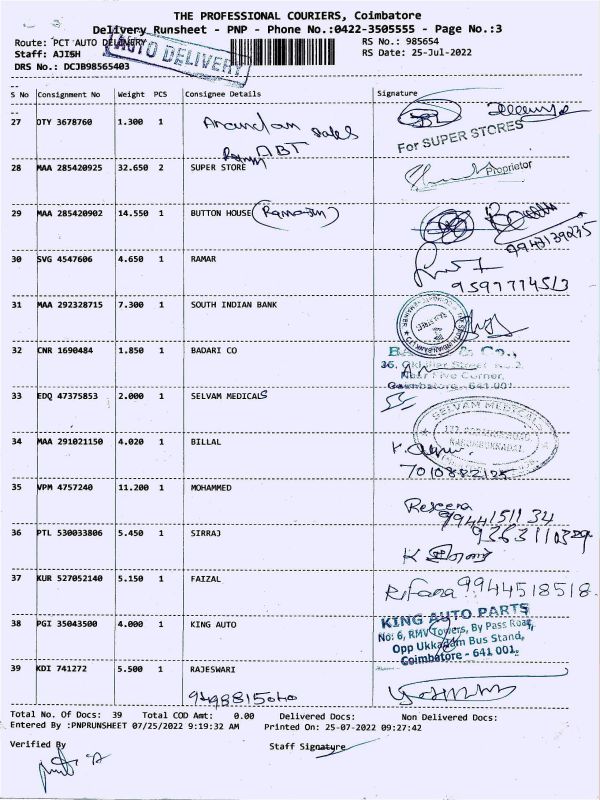 THE PROFESSIONAL COURIERS, Coimbatore
Delivery Runsheet - PNP - Phone No.:0422-3505555 - Page No.:3
Route: PCT AUTO DELIVERY RS No.: 985654
Staff: AJISH RS Date: 25-Jul-2022
DRS No.: DCJB98565403
AUTO DELIVERY
S No Consignment No Weight PCS Consignee Details Signature
27 OTY 3678760 1.300 1 Anandan sales
ABT
For SUPER STORES
28 MAA 285420925 32.650 2 SUPER STORE Proprietor
29 MAA 285420902 14.550 1 BUTTON HOUSE
9943139235
30 SVG 4547606 4.650 1 RAMAR
9597774513
31 MAA 292328715 7.300 1 SOUTH INDIAN BANK
32 CNR 1690484 1.850 1 BADARI CO
& Co.,
Five Corner,
Coimbatore - 641 001.
33 EDQ 47375853 2.000 1 SELVAM MEDICALS
SELVAM MEDICALS
34 MAA 291021150 4.020 1 BILLAL
7010882125
35 VPM 4757240 11.200 1 MOHAMMED
Reseena
9944151134
36 PTL 530033806 5.450 1 SIRRAJ 9363110329
37 KUR 527052140 5.150 1 FAIZAL Rifana 9944518518
38 PGI 35043500 4.000 1 KING AUTO KING AUTO PARTS
No: 6, RMV Towers, By Pass Road,
Opp Ukkadam Bus Stand,
Coimbatore - 641 001.
39 KDI 741272 5.500 1 RAJESWARI
Total No. Of Docs: 39 Total COD Amt: 0.00 Delivered Docs: Non Delivered Docs:
Entered By :PNPRUNSHEET 07/25/2022 9:19:32 AM Printed On: 25-07-2022 09:27:42
Verified By Staff Signature